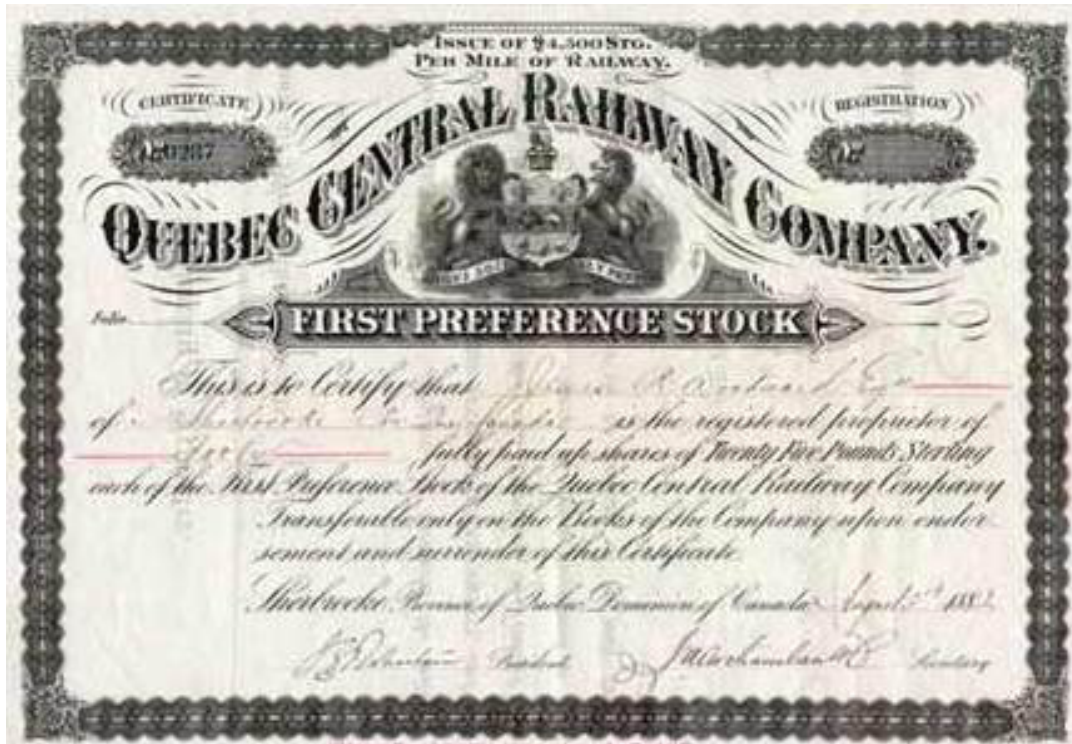 ISSUE OF £4,500 STG.
PER MILE OF RAILWAY.
CERTIFICATE
REGISTRATION
No 0287
No
QUEBEC CENTRAL RAILWAY COMPANY.
Folio
FIRST PREFERENCE STOCK
This is to Certify that
of Sherbrooke is the registered proprietor of
Forty fully paid up shares of Twenty Five Pounds Sterling
each of the First Preference Stock of the Quebec Central Railway Company
Transferable only on the Books of the Company upon endor
sement and surrender of this Certificate
Sherbrooke Province of Quebec Dominion of Canada August 188
President Secretary